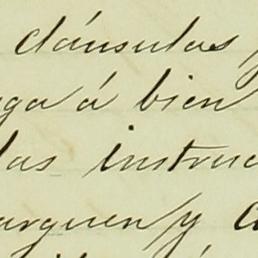 cláusulas
ga á bien
las instruc
arguen y